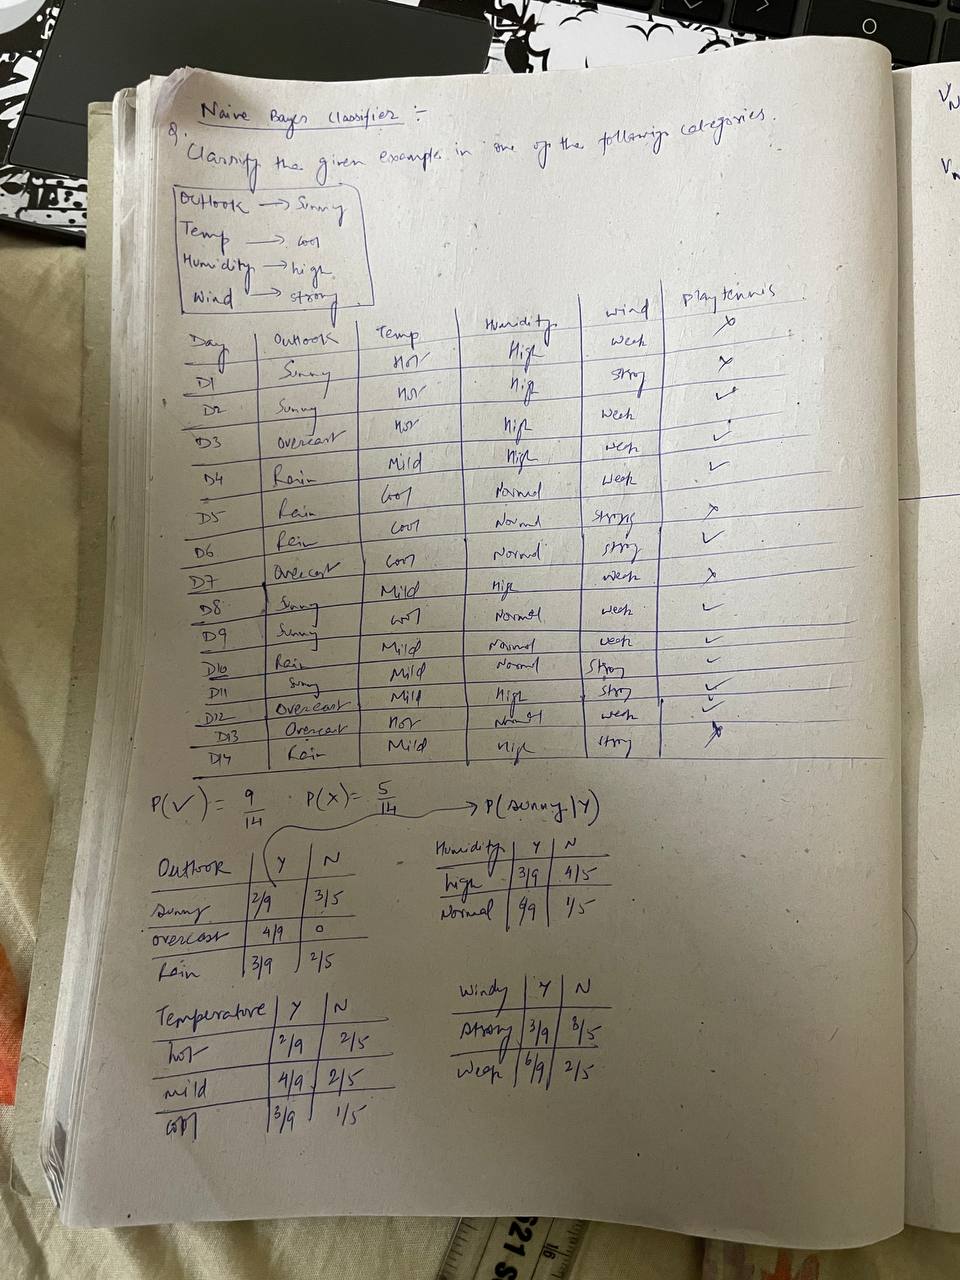 Naive Bayes Classifier :-
Q. Classify the given example in one of the following categories.
Outlook → Sunny
Temp → cool
Humidity → high
Wind → strong
Day Outlook Temp Humidity Wind Play tennis
D1 Sunny Hot High weak ✗
D2 Sunny Hot High strong ✗
D3 overcast Hot High weak ✓
D4 Rain Mild High weak ✓
D5 Rain Cool Normal weak ✓
D6 Rain Cool Normal strong ✗
D7 Overcast Cool Normal strong ✓
D8 Sunny Mild High weak ✗
D9 Sunny Cool Normal weak ✓
D10 Rain Mild Normal weak ✓
D11 Sunny Mild Normal Strong ✓
D12 Overcast Mild High strong ✓
D13 Overcast Hot Normal weak ✓
D14 Rain Mild High strong ✗
P(✓) = 9/14 P(X) = 5/14 → P(sunny|Y)
Outlook Y N
sunny 2/9 3/5
overcast 4/9 0
Rain 3/9 2/5
Humidity Y N
high 3/9 4/5
Normal 6/9 1/5
Temperature Y N
hot 2/9 2/5
mild 4/9 2/5
cool 3/9 1/5
Windy Y N
Strong 3/9 3/5
Weak 6/9 2/5